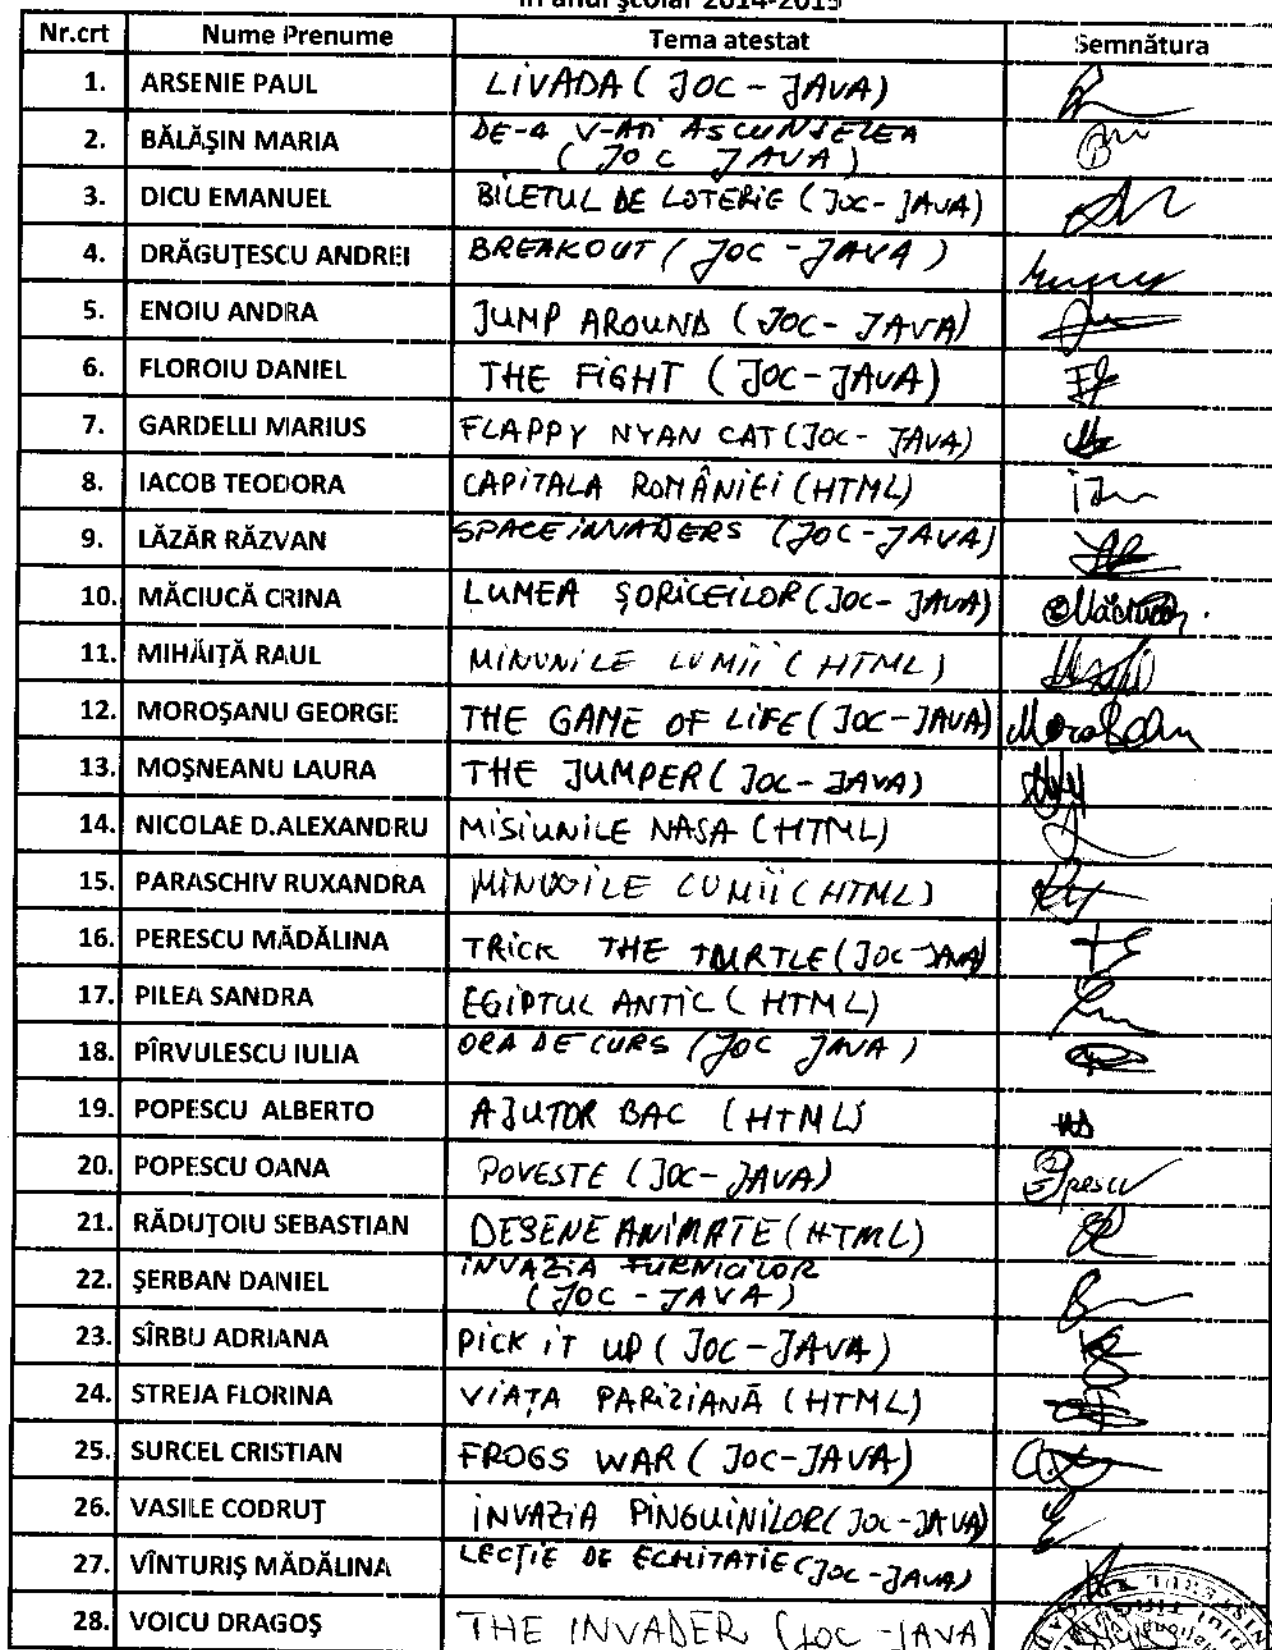 în anul școlar 2014-2015
Nr.crt Nume Prenume Tema atestat Semnătura
1. ARSENIE PAUL LIVADA ( JOC - JAVA)
2. BĂLĂŞIN MARIA DE-A V-AȚI ASCUNSELEA
( JOC JAVA )
3. DICU EMANUEL BILETUL DE LOTERIE (JOC- JAVA)
4. DRĂGUŢESCU ANDREI BREAKOUT ( JOC - JAVA )
5. ENOIU ANDRA JUMP AROUND (JOC- JAVA)
6. FLOROIU DANIEL THE FIGHT ( JOC-JAVA)
7. GARDELLI MARIUS FLAPPY NYAN CAT (JOC- JAVA)
8. IACOB TEODORA CAPITALA ROMÂNIEI (HTML)
9. LĂZĂR RĂZVAN SPACE INVADERS (JOC-JAVA)
10. MĂCIUCĂ CRINA LUMEA ŞORICEILOR (JOC- JAVA)
11. MIHĂIŢĂ RAUL MINUNILE LUMII ( HTML)
12. MOROŞANU GEORGE THE GAME OF LIFE (JOC-JAVA)
13. MOŞNEANU LAURA THE JUMPER ( JOC- JAVA)
14. NICOLAE D.ALEXANDRU MISIUNILE NASA (HTML)
15. PARASCHIV RUXANDRA MINUNILE LUMII (HTML)
16. PERESCU MĂDĂLINA TRICK THE TURTLE (JOC-JAVA)
17. PILEA SANDRA EGIPTUL ANTIC ( HTML)
18. PÎRVULESCU IULIA ORA DE CURS (JOC JAVA )
19. POPESCU ALBERTO AJUTOR BAC (HTML)
20. POPESCU OANA POVESTE (JOC-JAVA)
21. RĂDUŢOIU SEBASTIAN DESENE ANIMATE (HTML)
22. ŞERBAN DANIEL INVAZIA FURNICILOR
(JOC - JAVA)
23. SÎRBU ADRIANA PICK IT UP ( JOC-JAVA)
24. STREJA FLORINA VIAŢA PARIZIANĂ (HTML)
25. SURCEL CRISTIAN FROGS WAR ( JOC-JAVA)
26. VASILE CODRUŢ INVAZIA PINGUINILOR (JOC-JAVA)
27. VÎNTURIŞ MĂDĂLINA LECŢIE DE ECHITATIE (JOC-JAVA)
28. VOICU DRAGOŞ THE INVADER (JOC - JAVA)